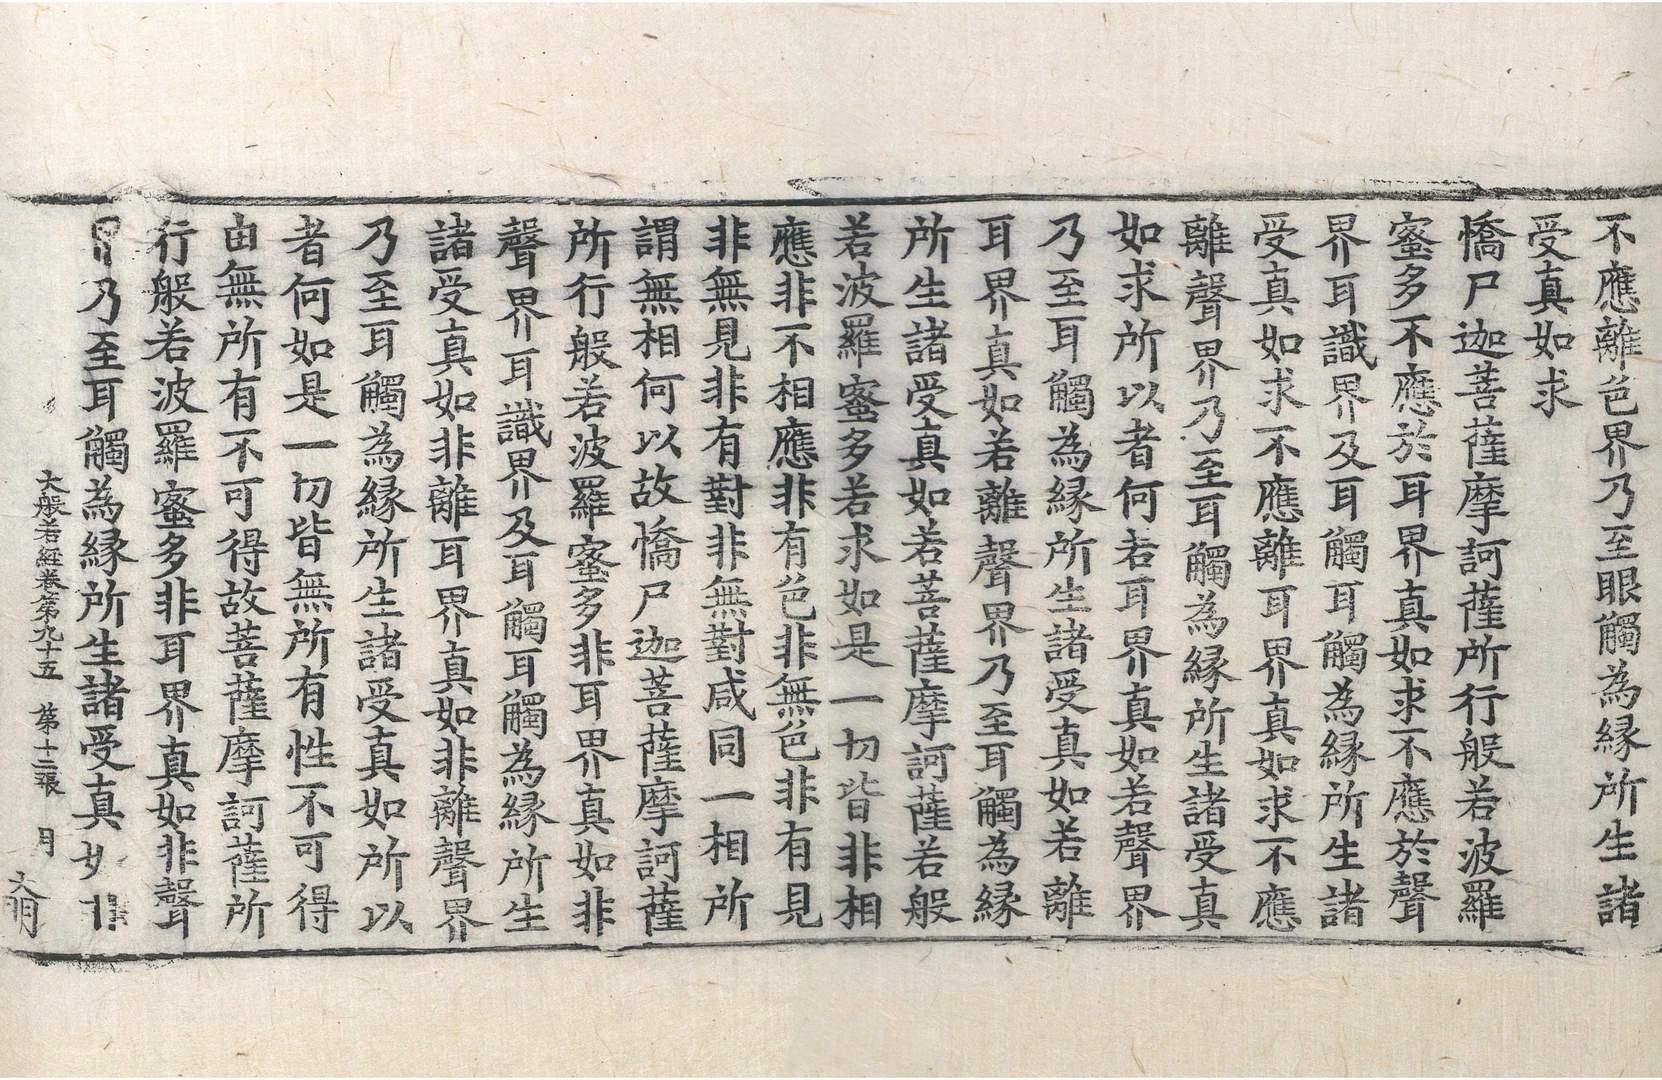 不應離色界乃至眼觸為緣所生諸
受真如求
憍尸迦菩薩摩訶薩所行般若波羅
蜜多不應於耳界真如求不應於聲
界耳識界及耳觸耳觸為緣所生諸
受真如求不應離耳界真如求不應
離聲界乃至耳觸為緣所生諸受真
如求所以者何若耳界真如若聲界
乃至耳觸為緣所生諸受真如若離
耳界真如若離聲界乃至耳觸為緣
所生諸受真如若菩薩摩訶薩若般
若波羅蜜多若求如是一切皆非相
應非不相應非有色非無色非有見
非無見非有對非無對咸同一相所
謂無相何以故憍尸迦菩薩摩訶薩
所行般若波羅蜜多非耳界真如非
聲界耳識界及耳觸耳觸為緣所生
諸受真如非離耳界真如非離聲界
乃至耳觸為緣所生諸受真如所以
者何如是一切皆無所有性不可得
由無所有不可得故菩薩摩訶薩所
行般若波羅蜜多非耳界真如非聲
界乃至耳觸為緣所生諸受真如非
大般若經卷第九十五 第十二張 月
大明